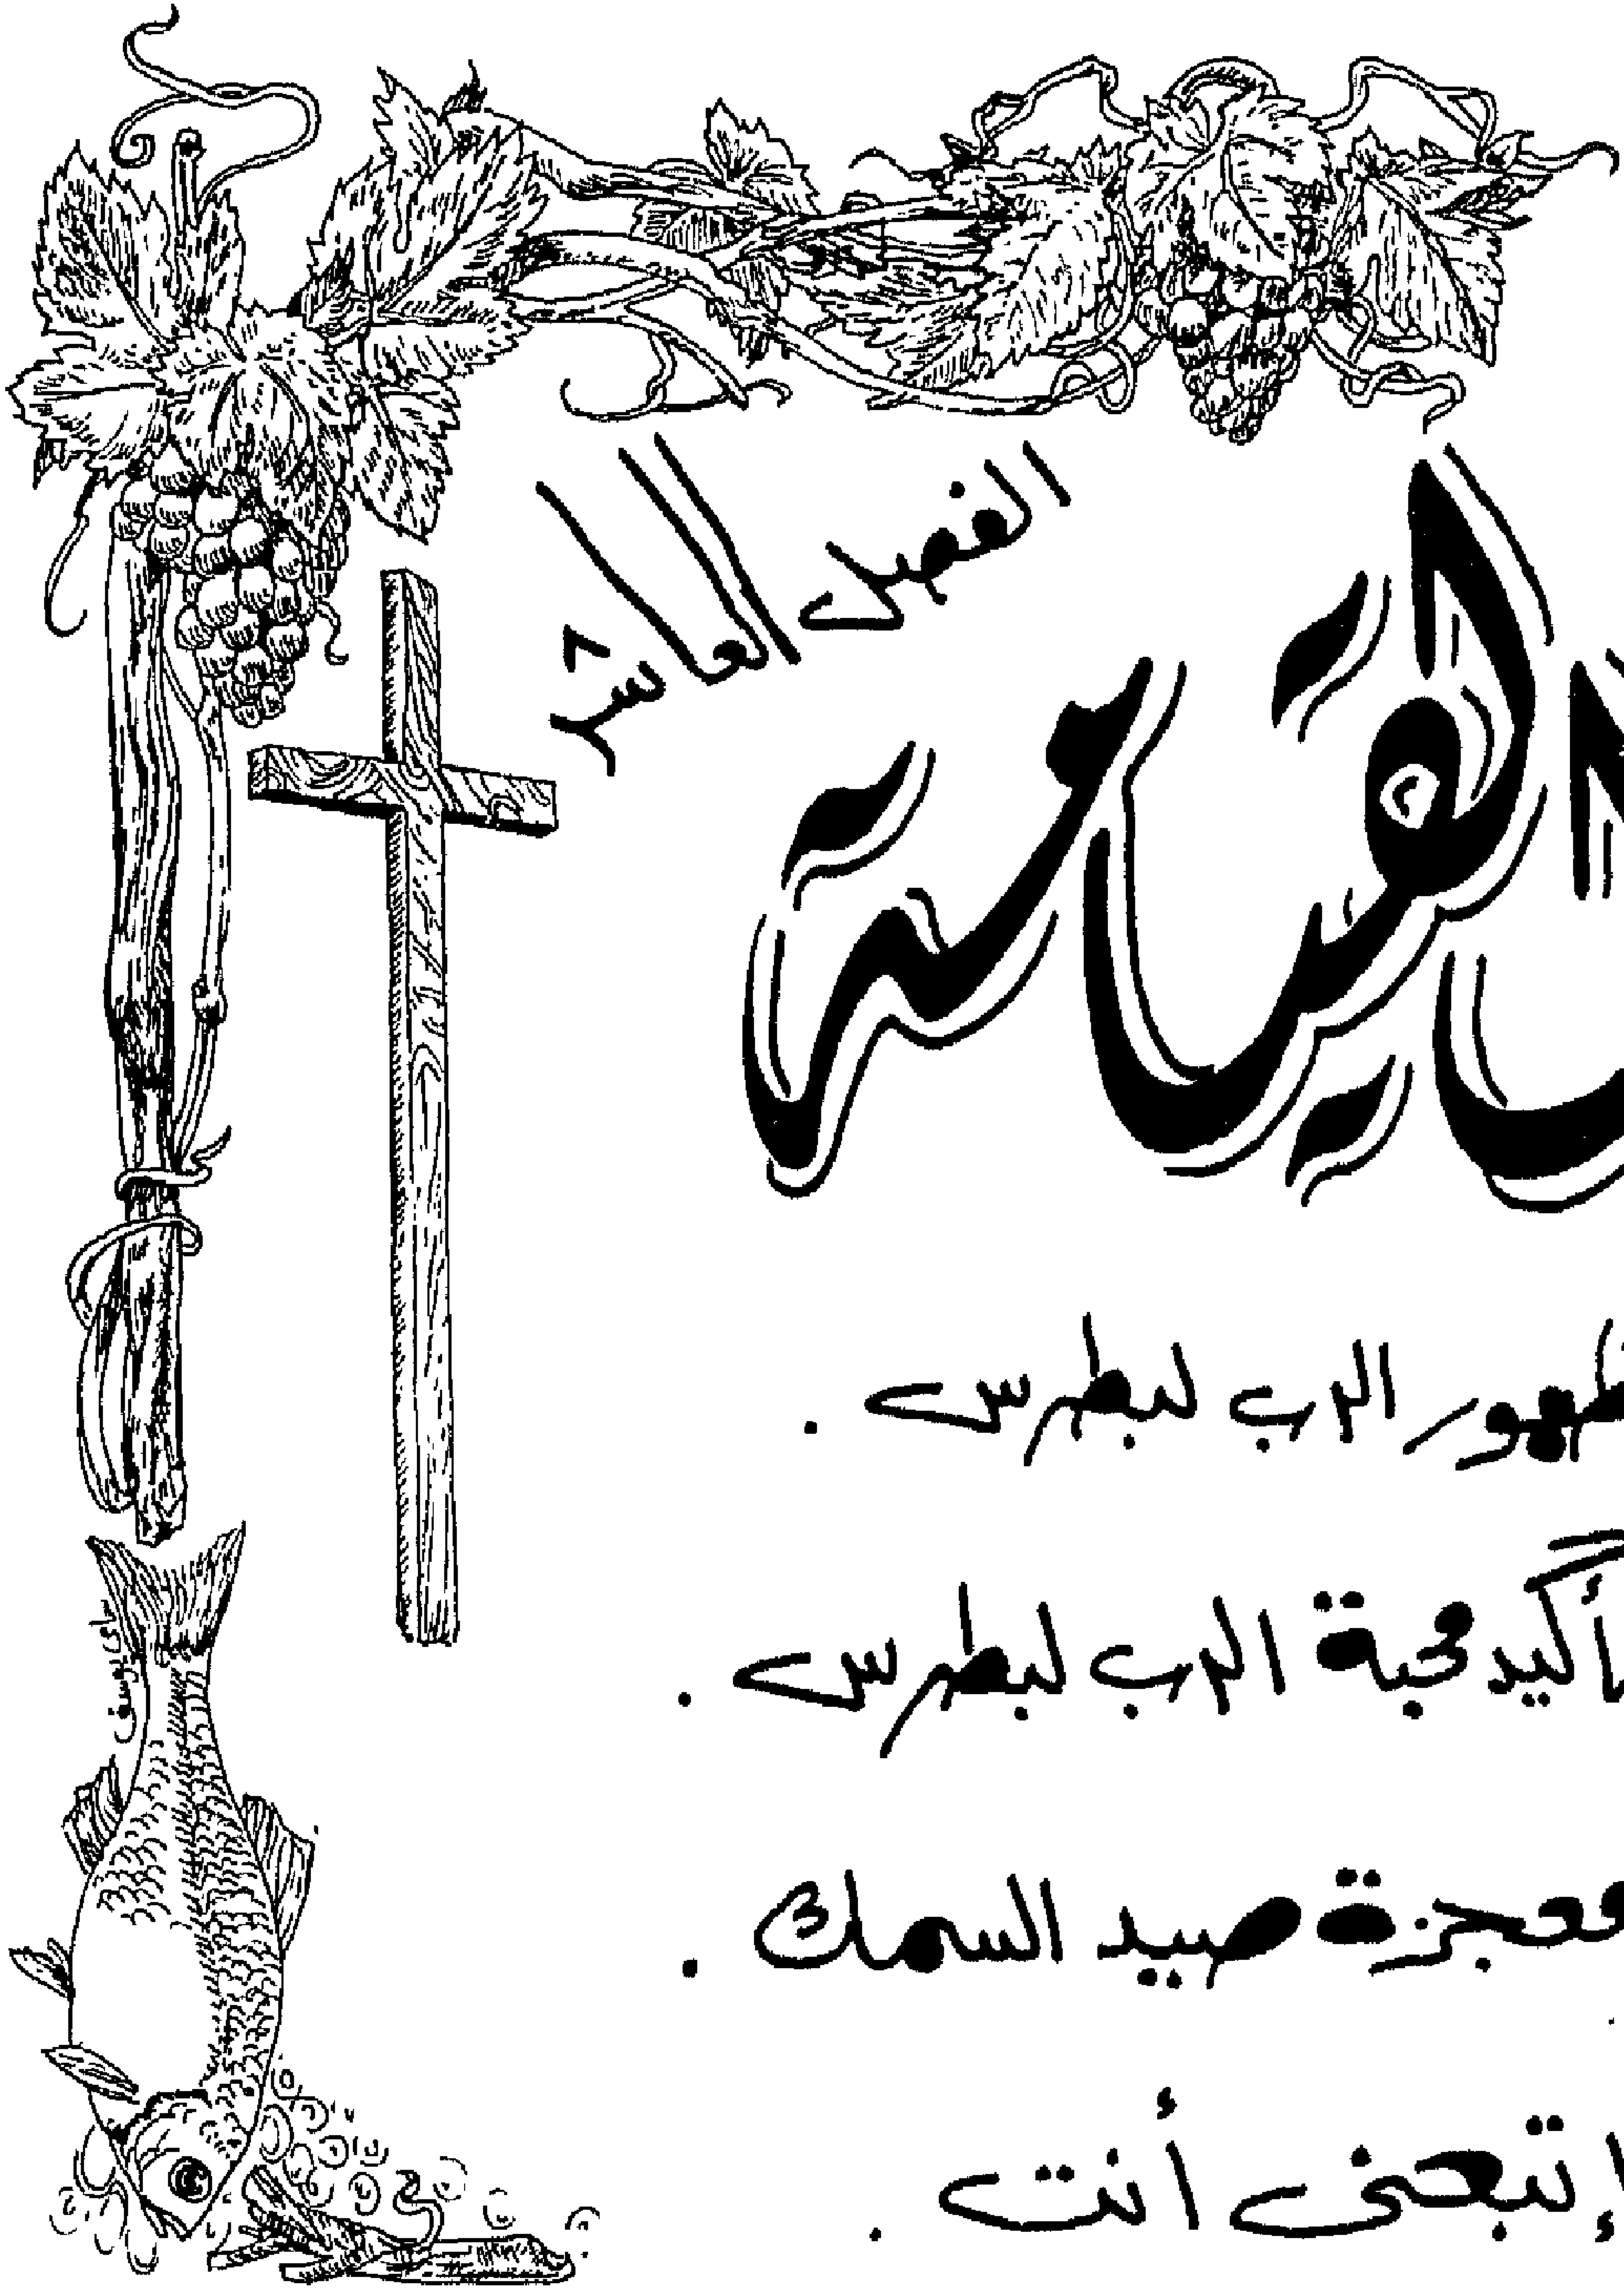 الفصل العاشر
القيامة
ظهور الرب لبطرس .
تأكيد محبة الرب لبطرس .
معجزة صيد السمك .
إتبعنى أنت .